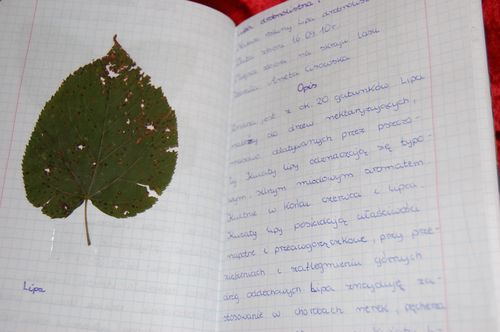 Lipa
Lipa drobnolistna
Nazwa rośliny Lipa drobnolistna
Data zbioru 16.09.10r.
Miejsce zbioru na skraju lasu
Aneta Lisowska
Opis
jest z ok. 20 gatunków Lipa
należy do drzew nektarujących,
oblatywanych przez pszczo-
ły Kwiaty lipy odznaczają się typo-
wym, silnym miodowym aromatem
Kwitnie w końcu czerwca i lipca.
Kwiaty lipy posiadają właściwości
napotne i przeciwgorączkowe, przy prze-
ziębieniach i zaflegmieniu górnych
dróg oddechowych Lipa znajduje za-
stosowanie w chorobach nerek, pęcherza